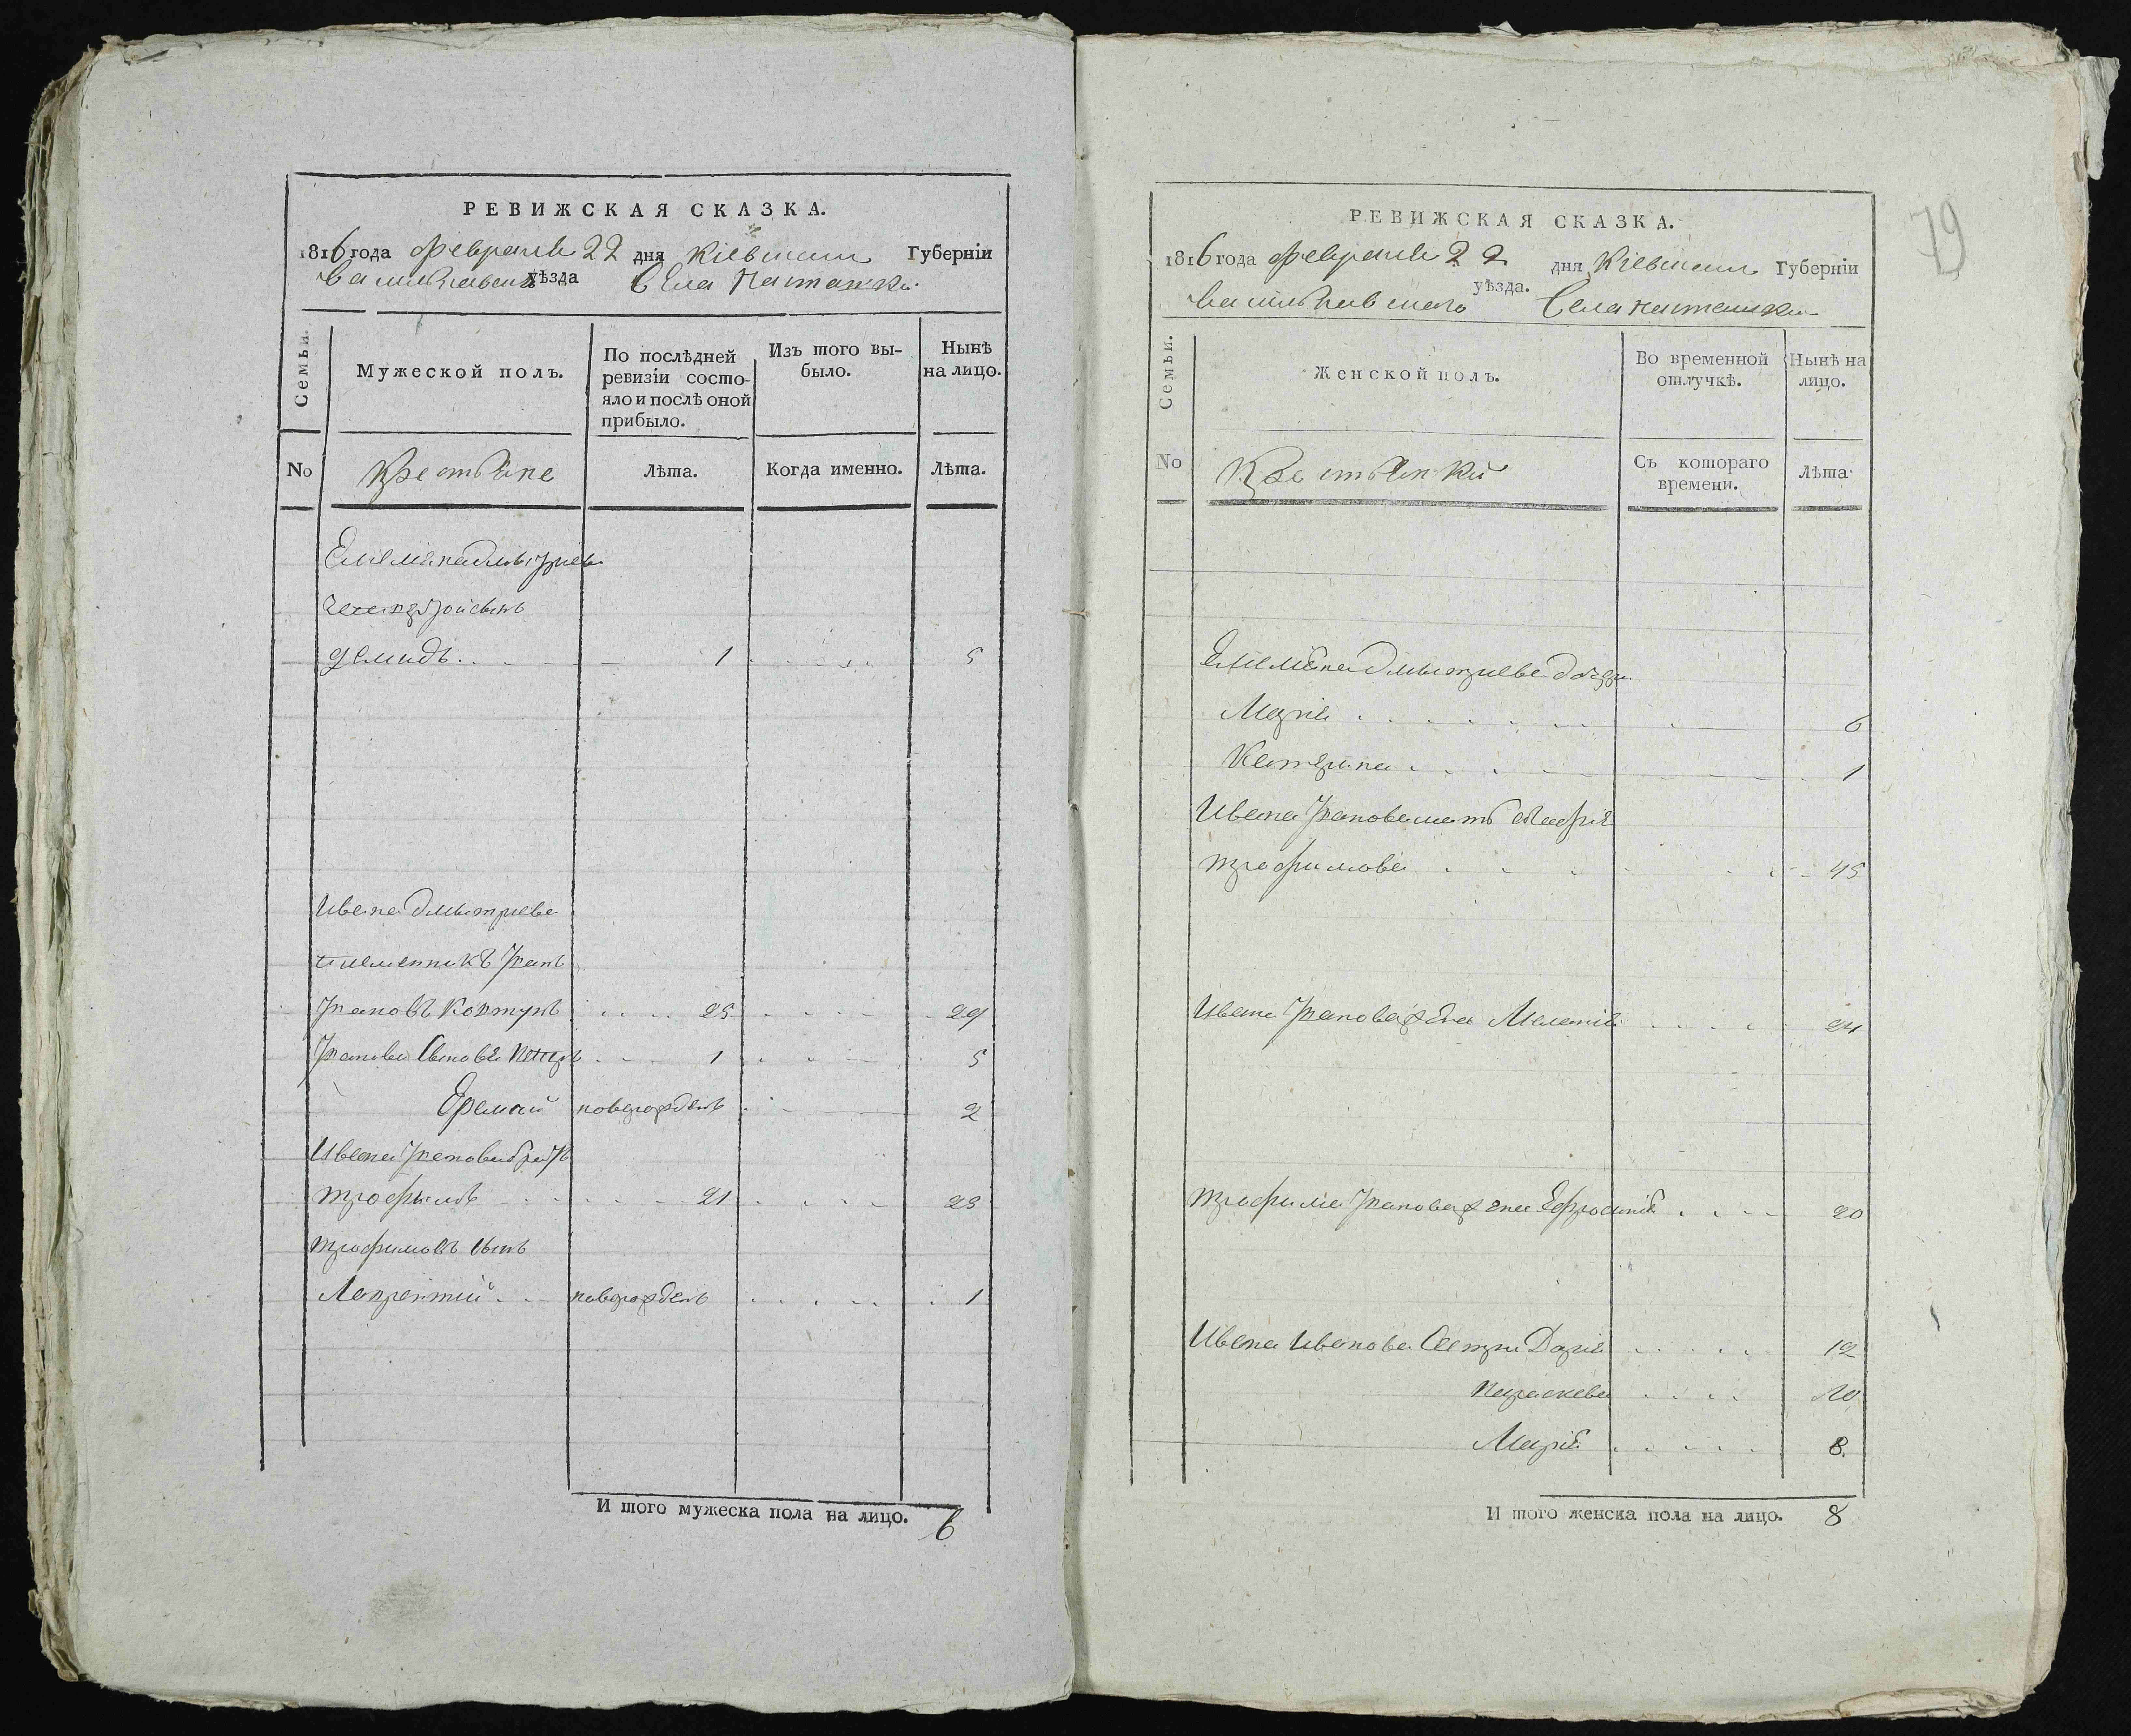 РЕВИЖСКАЯ СКАЗКА.
1816 года февраля 22 дня Кіевской Губерніи
Васильковскаго уѣзда Села
Семьи.
Мужеской полъ.
По послѣдней ревизіи состояло и послѣ оной прибыло.
Изъ того выбыло.
Нынѣ на лицо.
No
Крестьяне
Лѣта.
Когда именно.
Лѣта.
Емельяна Дмытріева
сынъ
Демидъ 1 5
Ивана Дмытріева
племенникъ
Ковтунъ 25 29
Сыновья Петръ 1 5
Еремай новорожденъ 2
Ивана братъ
Трофымъ 21 25
Трофимовъ сынъ
Лаврентий новорожденъ 1
И того мужеска пола на лицо. 6
РЕВИЖСКАЯ СКАЗКА.
79
1816 года февраля 22 дня Кіевской Губерніи
Васильковского уѣзда. Села
Семьи.
Женской полъ.
Во временной отлучкѣ.
Нынѣ на лицо.
No
Крестьянки
Съ котораго времени.
Лѣта.
Емельяна Дмытриева дочери
Мария 6
Катерина 1
Ивана мать
Трофимова 45
Ивана жена Мелания 24
Трофима жена Ефросиния 20
Ивана Иванова Сестри Дария 12
Параскева 10
Мария 8.
И того женска пола на лицо. 8